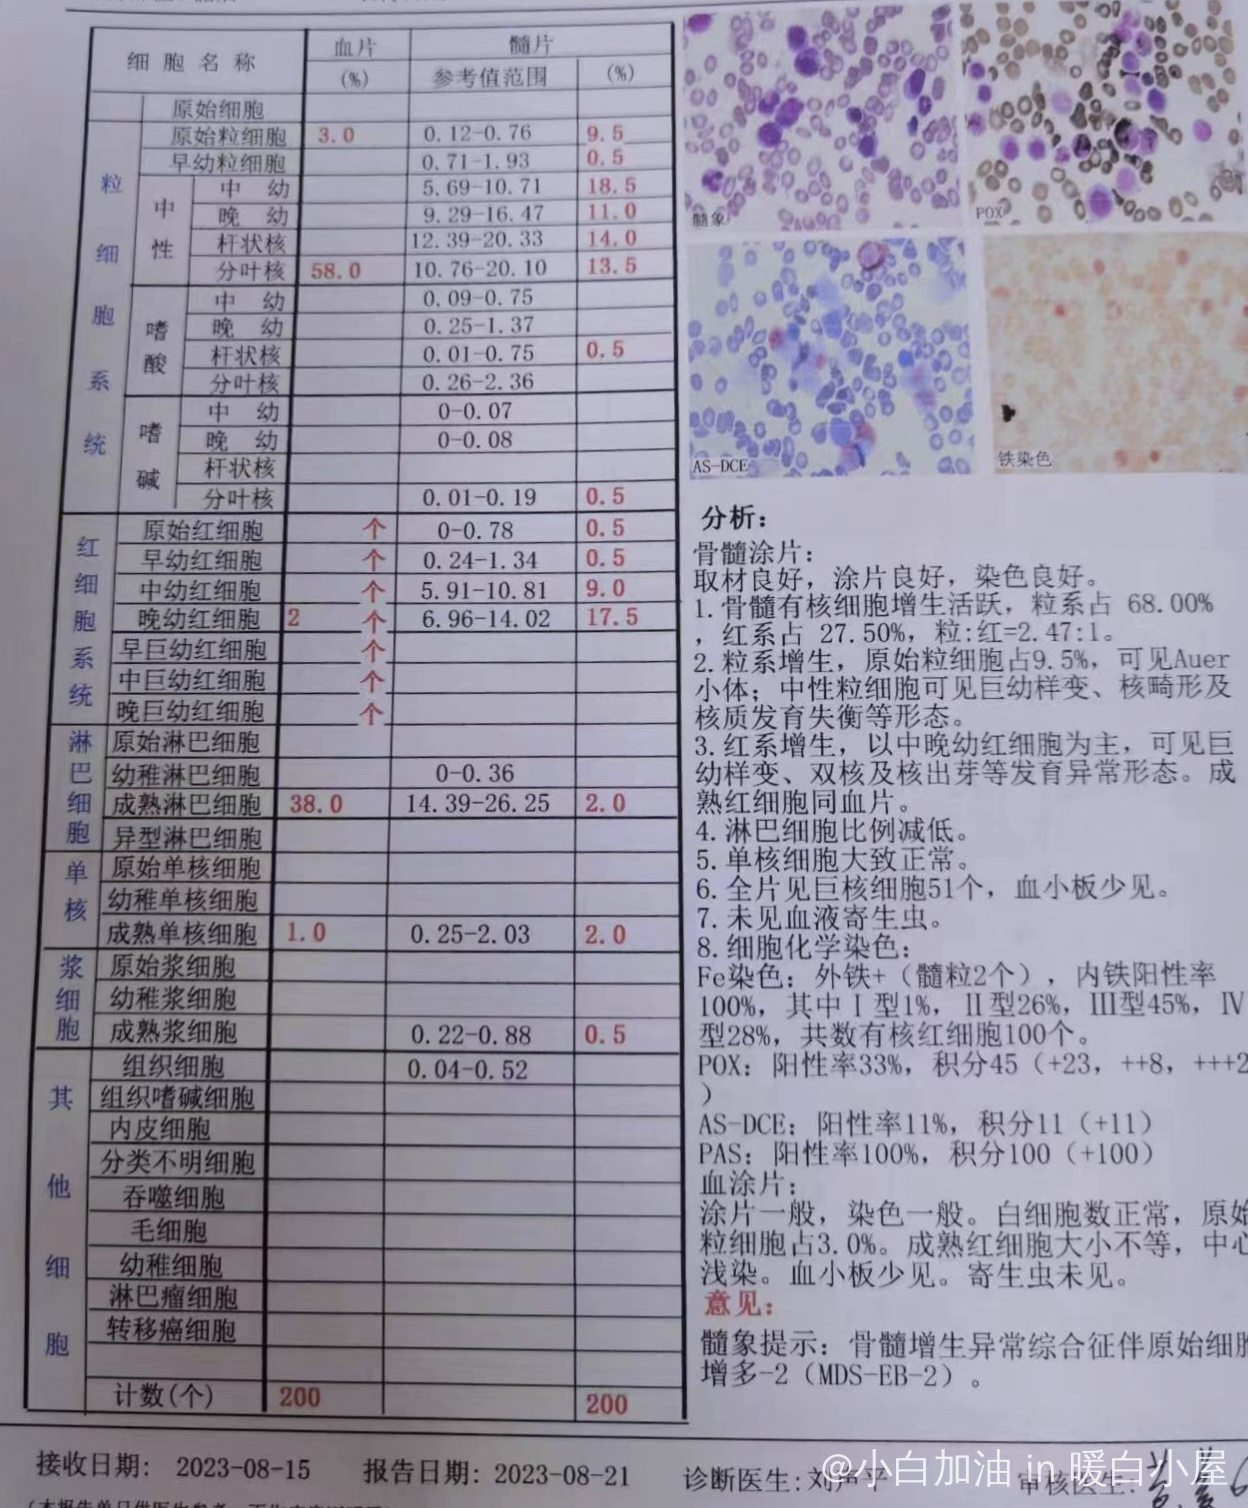 细胞名称 血片 髓片
(%) 参考值范围 (%)
原始细胞
粒细胞系统
原始粒细胞 3.0 0.12-0.76 9.5
早幼粒细胞 0.71-1.93 0.5
中性
中幼 5.69-10.71 18.5
晚幼 9.29-16.47 11.0
杆状核 12.39-20.33 14.0
分叶核 58.0 10.76-20.10 13.5
嗜酸
中幼 0.09-0.75
晚幼 0.25-1.37
杆状核 0.01-0.75 0.5
分叶核 0.26-2.36
嗜碱
中幼 0-0.07
晚幼 0-0.08
杆状核
分叶核 0.01-0.19 0.5
红细胞系统
原始红细胞 个 0-0.78 0.5
早幼红细胞 个 0.24-1.34 0.5
中幼红细胞 个 5.91-10.81 9.0
晚幼红细胞 2 个 6.96-14.02 17.5
早巨幼红细胞 个
中巨幼红细胞 个
晚巨幼红细胞 个
淋巴细胞
原始淋巴细胞
幼稚淋巴细胞 0-0.36
成熟淋巴细胞 38.0 14.39-26.25 2.0
异型淋巴细胞
单核
原始单核细胞
幼稚单核细胞
成熟单核细胞 1.0 0.25-2.03 2.0
浆细胞
原始浆细胞
幼稚浆细胞
成熟浆细胞 0.22-0.88 0.5
其他细胞
组织细胞 0.04-0.52
组织嗜碱细胞
内皮细胞
分类不明细胞
吞噬细胞
毛细胞
幼稚细胞
淋巴瘤细胞
转移癌细胞
计数(个) 200 200
髓象
POX
AS-DCE
铁染色
分析：
骨髓涂片：
取材良好，涂片良好，染色良好。
1.骨髓有核细胞增生活跃，粒系占 68.00%
，红系占 27.50%，粒:红=2.47:1。
2.粒系增生，原始粒细胞占9.5%，可见Auer
小体；中性粒细胞可见巨幼样变、核畸形及
核质发育失衡等形态。
3.红系增生，以中晚幼红细胞为主，可见巨
幼样变、双核及核出芽等发育异常形态。成
熟红细胞同血片。
4.淋巴细胞比例减低。
5.单核细胞大致正常。
6.全片见巨核细胞51个，血小板少见。
7.未见血液寄生虫。
8.细胞化学染色：
Fe染色：外铁+（髓粒2个），内铁阳性率
100%，其中Ⅰ型1%，Ⅱ型26%，Ⅲ型45%，Ⅳ
型28%，共数有核红细胞100个。
POX：阳性率33%，积分45（+23，++8，+++2
）
AS-DCE：阳性率11%，积分11（+11）
PAS：阳性率100%，积分100（+100）
血涂片：
涂片一般，染色一般。白细胞数正常，原始
粒细胞占3.0%。成熟红细胞大小不等，中心
浅染。血小板少见。寄生虫未见。
意见：
髓象提示：骨髓增生异常综合征伴原始细胞
增多-2（MDS-EB-2）。
接收日期：2023-08-15 报告日期：2023-08-21 诊断医生：刘声平 审核医生：
@小白加油 in 暖白小屋